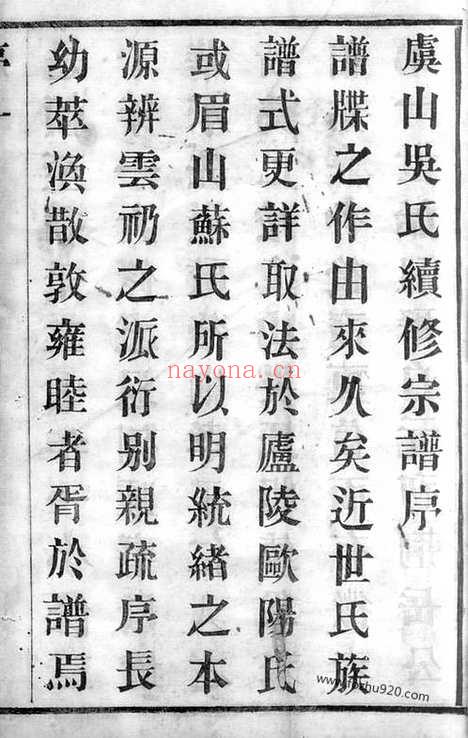 虞山吳氏續修宗譜序
譜牒之作由來久矣近世氏族
譜式更詳取法於廬陵歐陽氏
或眉山蘇氏所以明統緒之本
源辨雲礽之派衍别親疏序長
幼萃渙散敦雍睦者胥於譜焉
nayona.cn
www.fozhu920.com